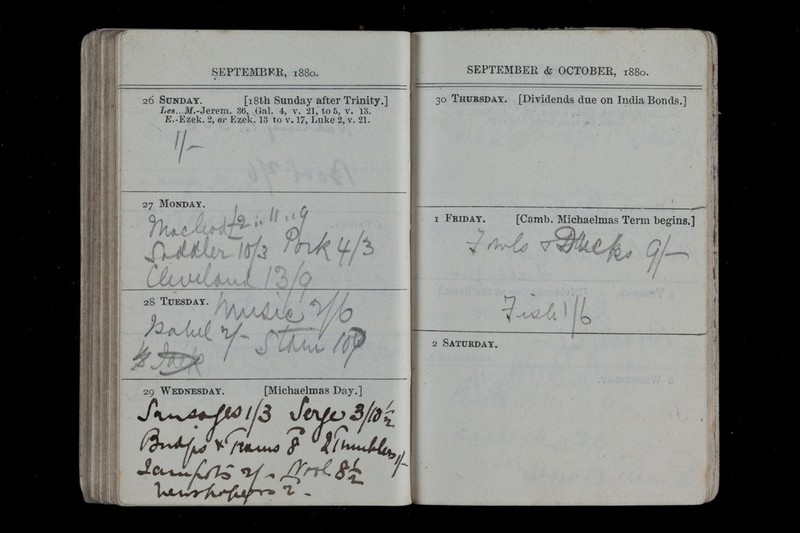 SEPTEMBER, 1880.
26 SUNDAY. [18th Sunday after Trinity.]
Les...M.-Jerem. 36, Gal. 4, v. 21, to 5, v. 13.
E.-Ezek. 2, or Ezek. 13 to v. 17, Luke 2, v. 21.
1/-
27 MONDAY.
Macleod £2 " 11 " 9
Saddler 10/3 Pork 4/3
Cleveland 13/9
28 TUESDAY.
Music 2/6
Isabel 2/-
29 WEDNESDAY. [Michaelmas Day.]
Sausages 1/3 Serge 3/10½
& Trams 8 2 Tumblers 1/-
Jampots 2/- Wool 8½
Newspapers 2 -
SEPTEMBER & OCTOBER, 1880.
30 THURSDAY. [Dividends due on India Bonds.]
1 FRIDAY. [Camb. Michaelmas Term begins.]
Fowls & Ducks 9/-
Fish 1/6
2 SATURDAY.